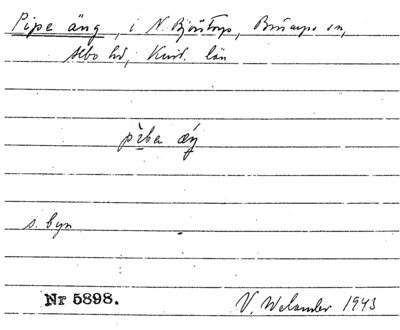 Pipe äng, i N. Björstorp, Brösarps sn,
Albo hd, Krist. län
pìba æŋ
s. byn
Nr 5898.
V. Welander 1943